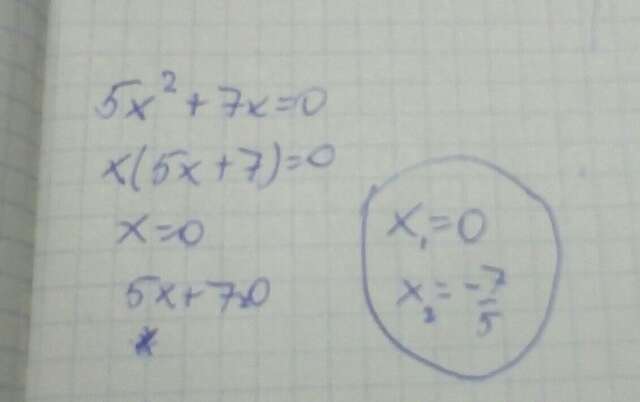 5x² + 7x = 0
x(5x + 7) = 0
x = 0
5x + 7 = 0
x
x₁ = 0
x₂ = -7/5